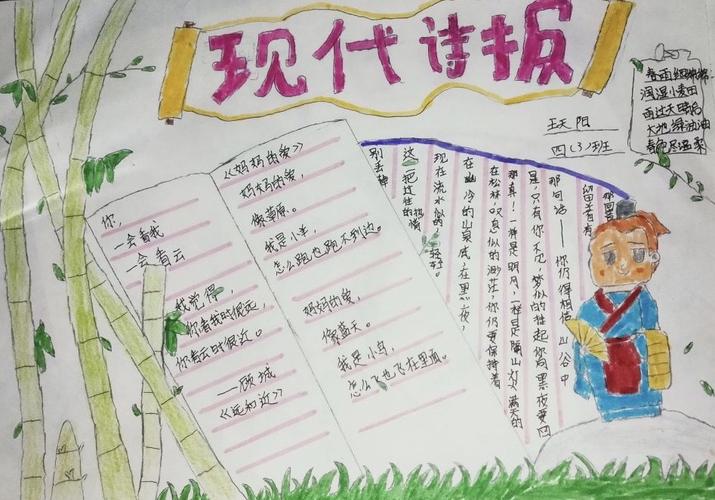 现代诗报
天阳
四(3)班
春雨细绵绵
润湿小麦田
雨过天晴后
大地绿油油
你,
一会看我
一会看云
我觉得,
你看我时很远,
你看云时很近。
——顾城
《远和近》
《妈妈的爱》
妈妈的爱,
像草原。
我是小羊,
怎么跑也跑不到边。
妈妈的爱,
像蓝天。
我是小鸟,
怎么飞也飞在里面。
那句话——你仍得相信 山谷中
是,只有你不见,梦似的挂起 你向黑夜要回
那真!一样是明月,一样是隔山灯火 满天的
在松林,叹息似的渺茫,你仍要保持着
在幽冷的山泉底,在黑夜,
现在流水似的 轻轻
这一把过往的热情
别丢掉